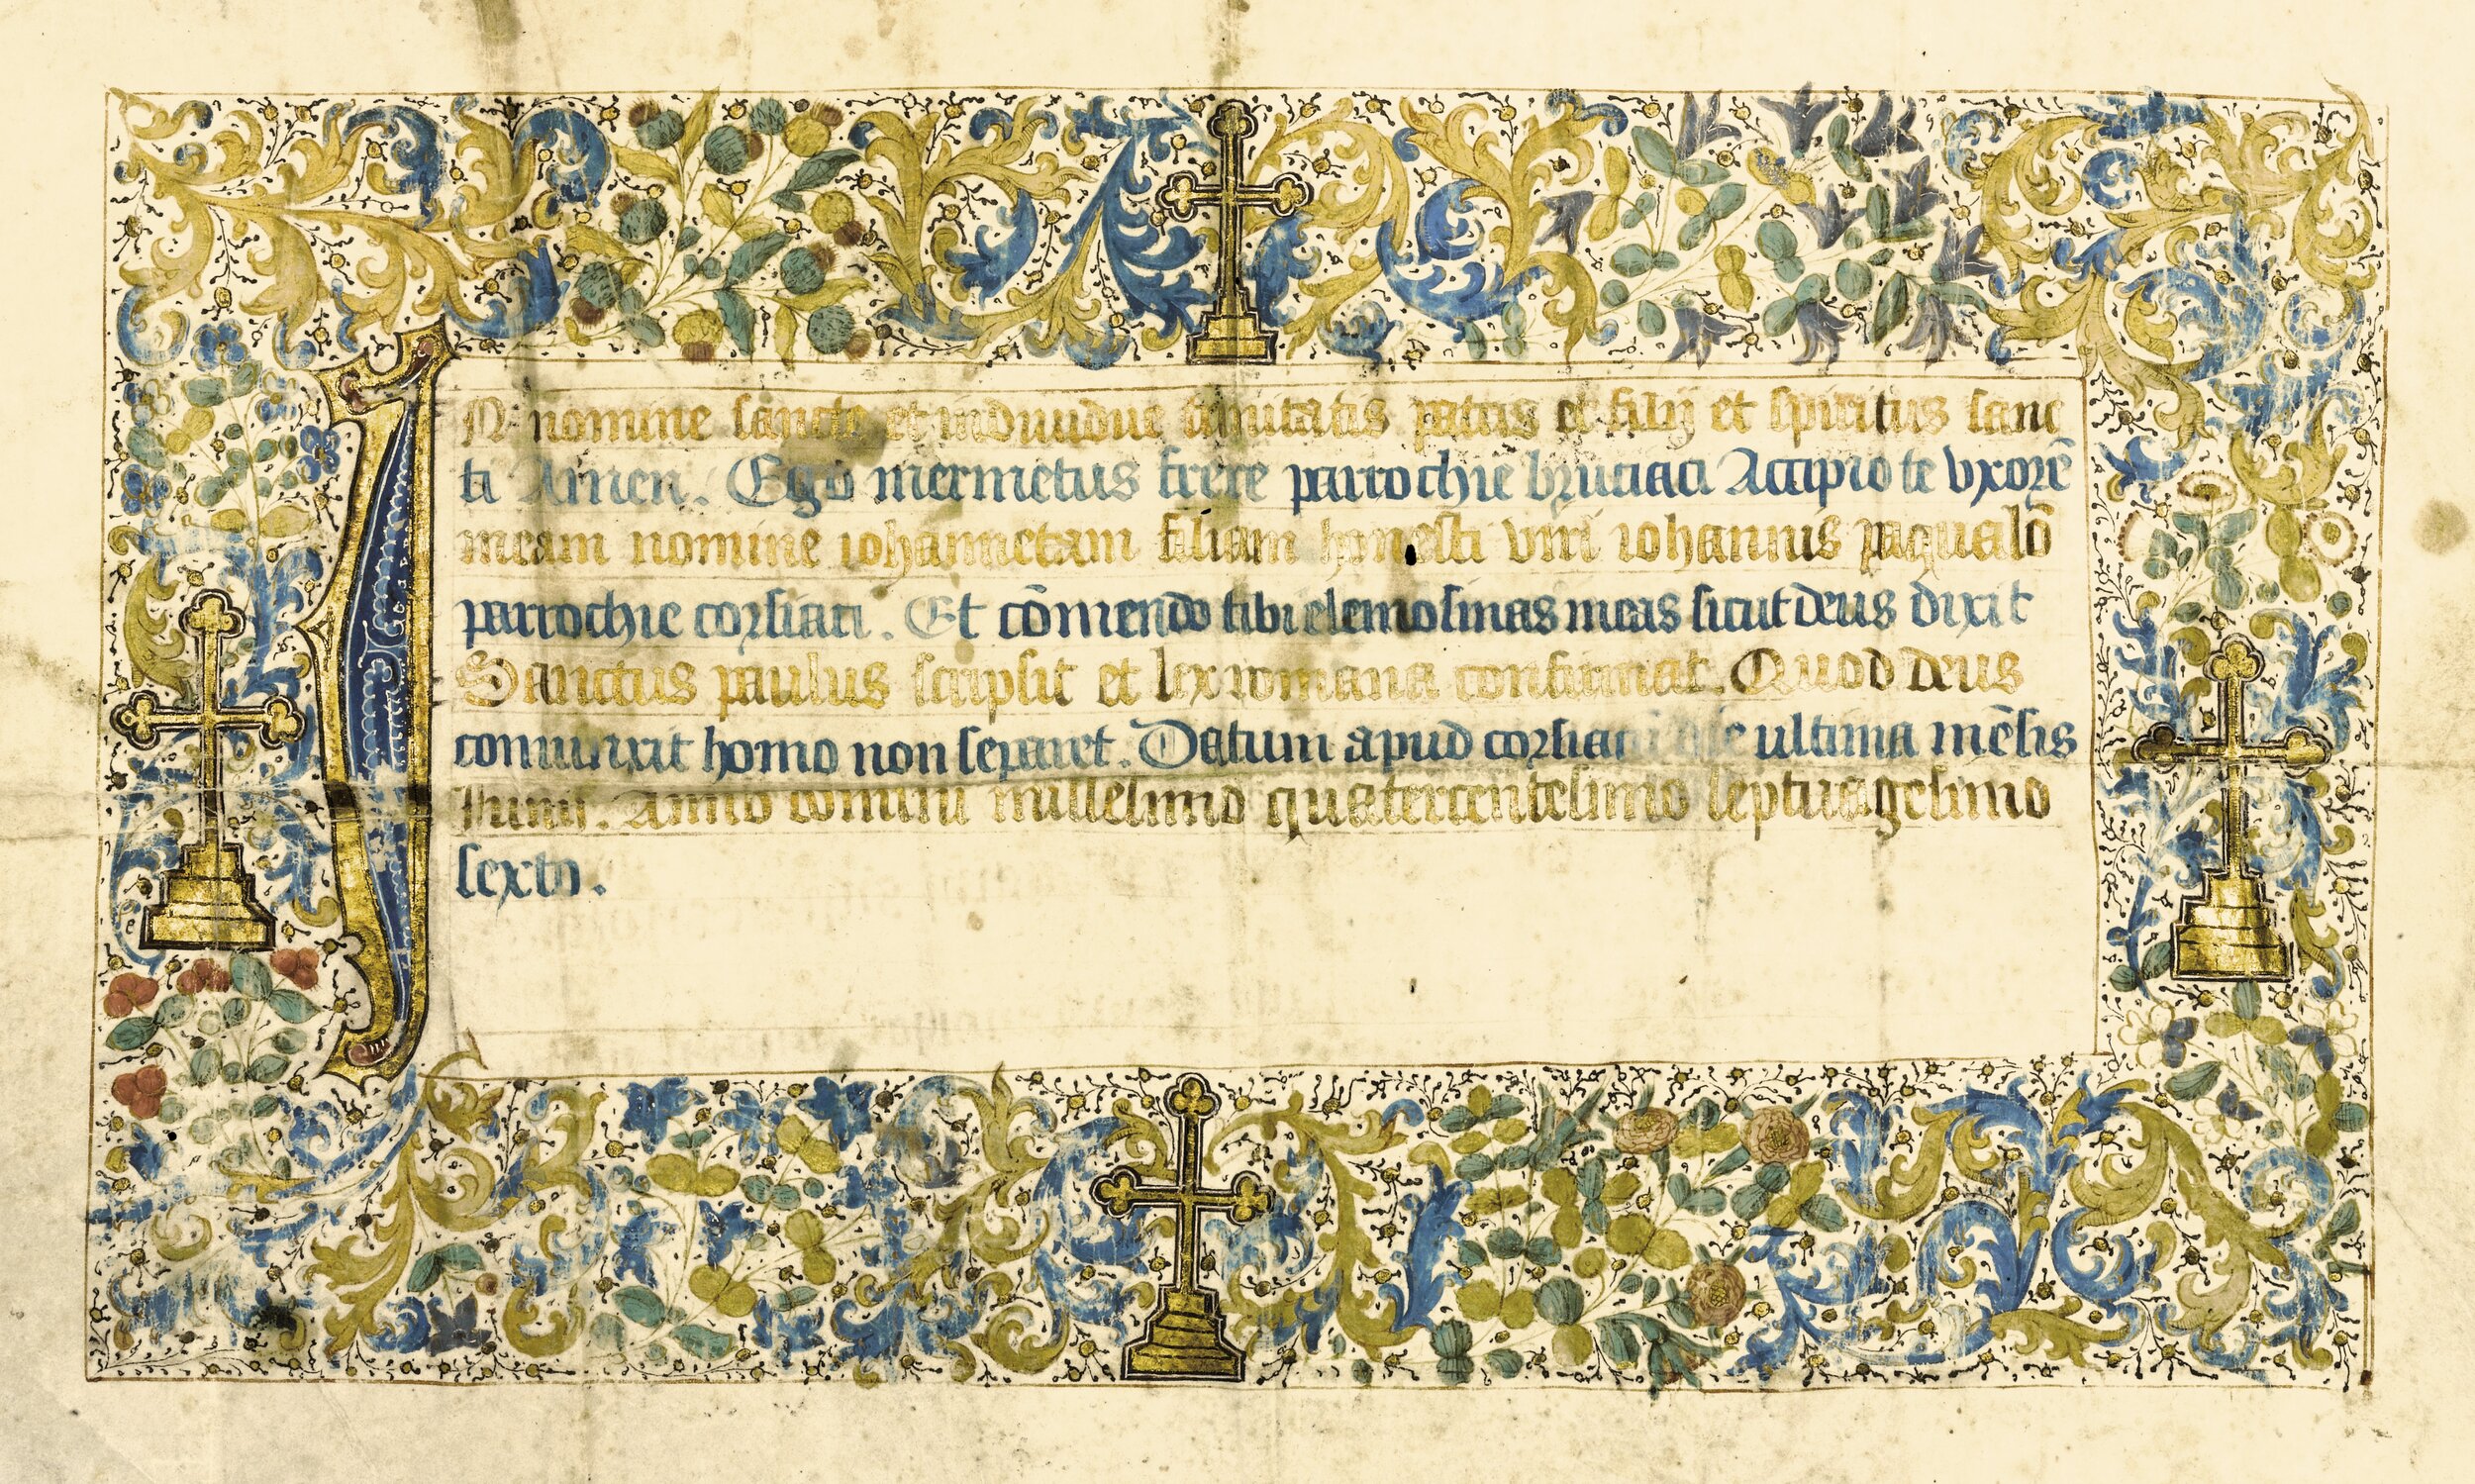 IN nomine sancte et indiuidue trinitatis patris et filij et spiritus sanc
ti Amen. Ego mermetus frere parrochie bruciaci Accipio te vxorē
meam nomine iohannetam filiam honesti viri iohannis paqualō
parrochie corsiaci. Et cōmendo tibi elemosinas meas sicut deus dixit
Sanctus paulus scripsit et lex romana confirmat. Quod deus
coniunxit homo non separet. Datum apud corsiaci die ultima mēsis
Iunii. Anno domini millesimo quatercentesimo septuagesimo
sexto.